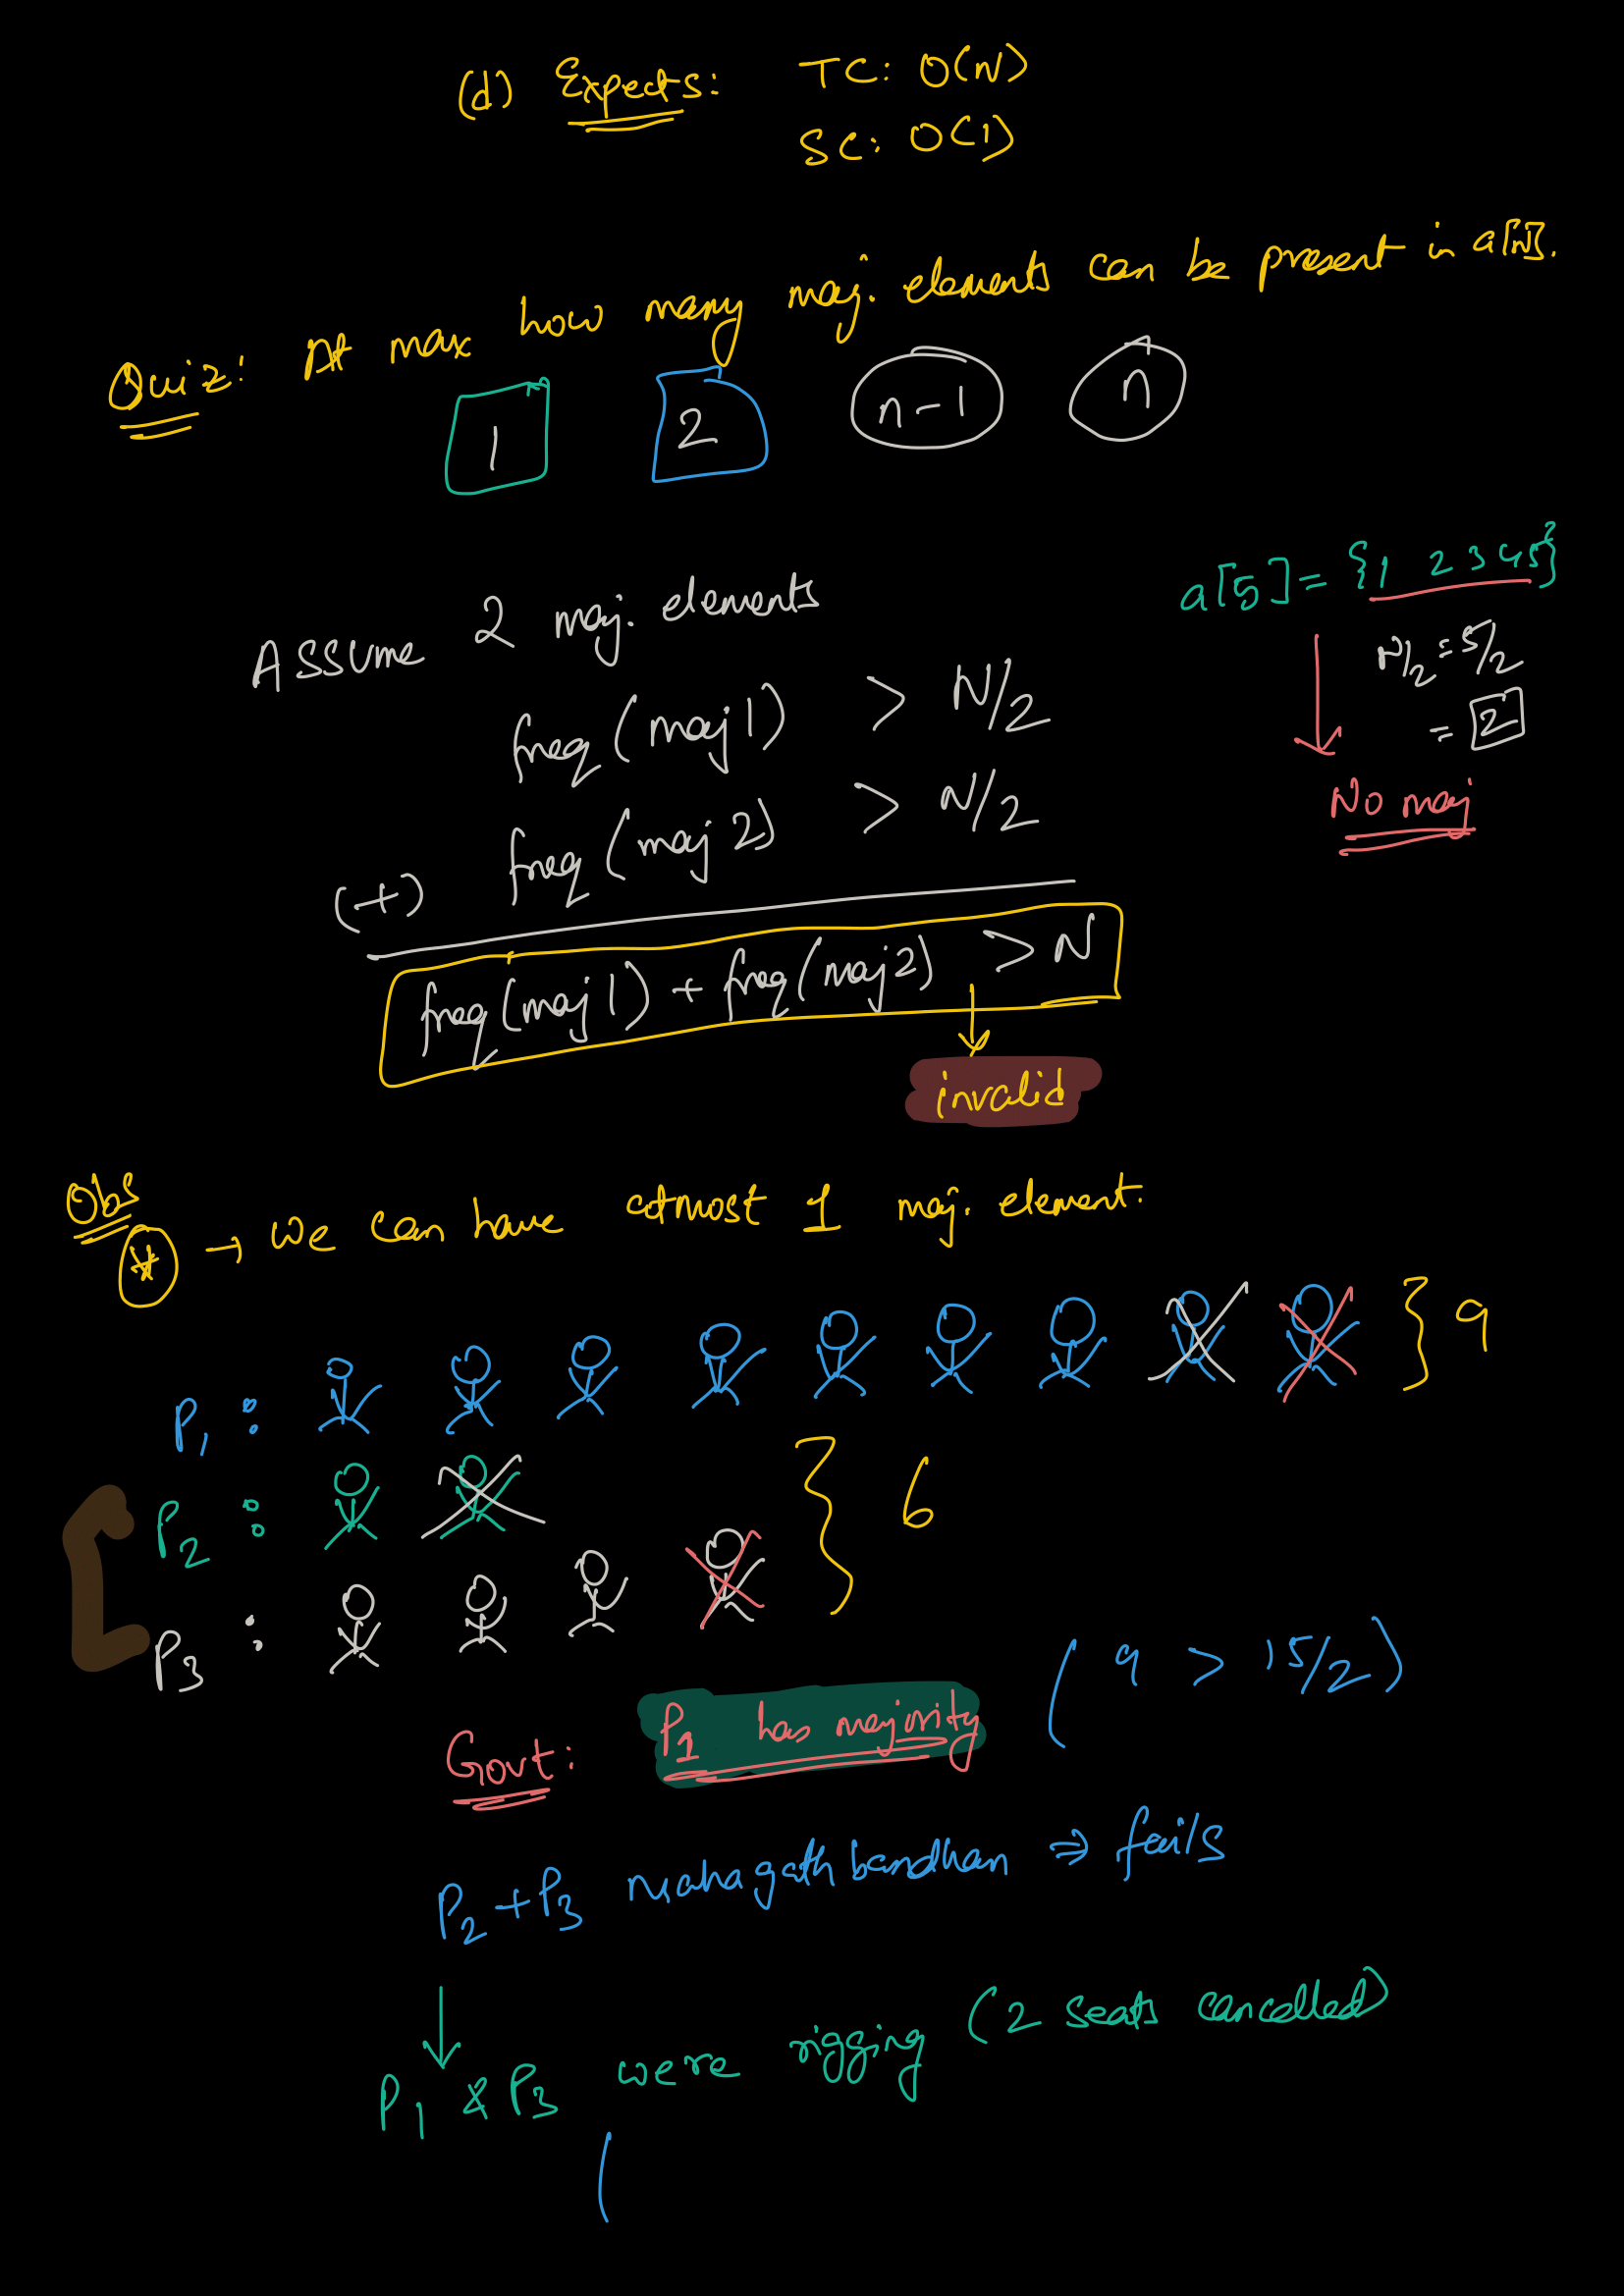 (d) Expects: TC: O(N)
SC: O(1)
Quiz: At max how many maj. elements can be present in a[N].
1 2 n-1 n
a[5] = {1 2 3 4 5}
N/2 = 5/2
= 2
No maj
Assume 2 maj. elements
freq (maj 1) > N/2
(+) freq (maj 2) > N/2
freq (maj 1) + freq (maj 2) > N
invalid
Obs
* → we can have atmost 1 maj. element.
P1 : } 9
P2 : } 6
P3 :
( 9 > 15/2 )
Govt: P1 has majority
P2 + P3 mahagathbandhan ⇒ fails
↓
P1 & P3 were rigging (2 seats cancelled)
(